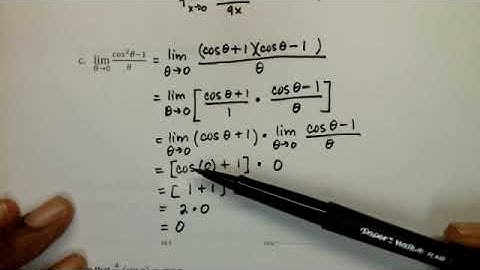 lim θ→0 9x
c. lim θ→0 cos²θ-1/θ = lim θ→0 (cosθ+1)(cosθ-1)/θ
= lim θ→0 [cosθ+1/1 · cosθ-1/θ]
= lim θ→0 (cosθ+1) · lim θ→0 cosθ-1/θ
= [cos(0)+1] · 0
= [1+1]
= 2·0
= 0
Paper Mate